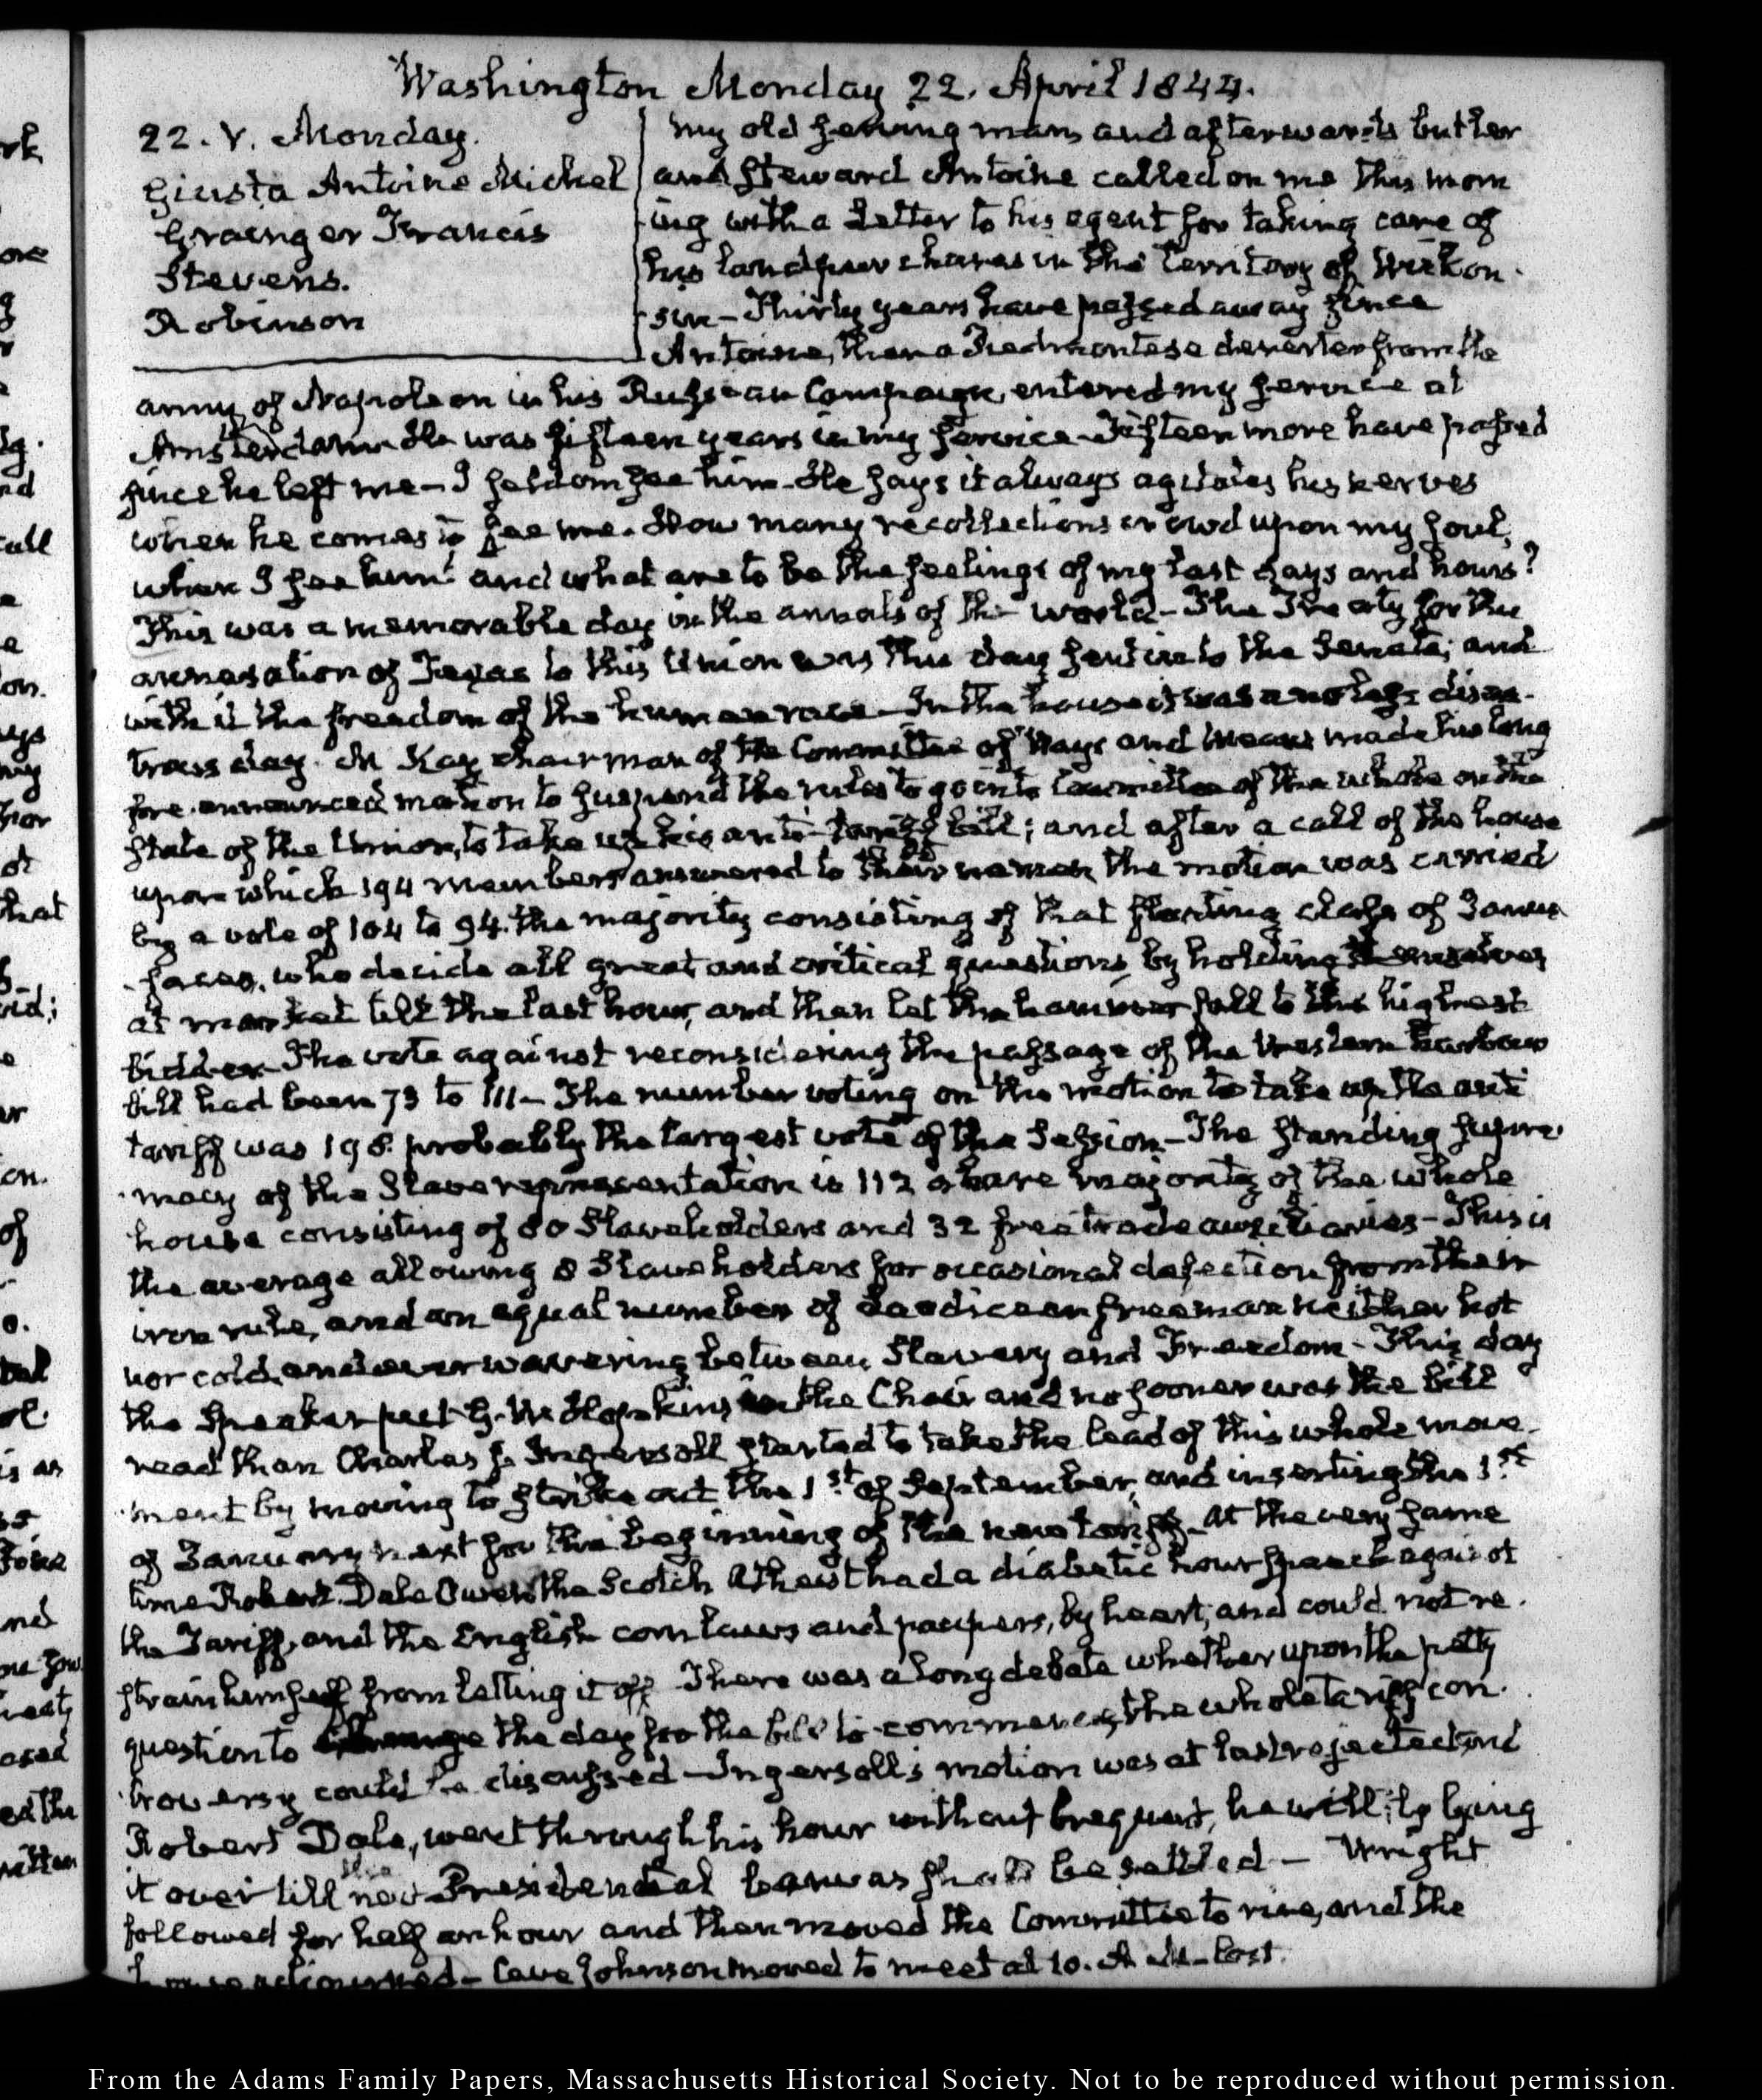 Washington Monday 22. April 1844.
22. V. Monday.
Giusta Antoine Michel
Granger Francis
Stevens.
Robinson
My old serving man, and afterwards butler
and steward Antoine called on me this morn
ing with a letter to his agent for taking care of
his land purchases in the Territory of Wiskon-
sin - Thirty years have passed away since
Antoine, then a Piedmontese deserter from the
army of Napoleon in his Russian Campaign, entered my service at
Amsterdam. He was fifteen years in my service - Fifteen more have passed
since he left me - I seldom see him - He says it always agitates his nerves
when he comes to see me. How many recollections crowd upon my soul,
when I see him! and what are to be the feelings of my last days and hours?
This was a memorable day in the annals of the world - The Treaty for the
annexation of Texas to this Union was this day sent in to the Senate; and
with it the freedom of the human race - In the house it was a not less disas-
trous day. Mc Kay chairman of the Committee of Ways and Means made his long
fore-announced motion to suspend the rules to go into Committee of the whole on the
state of the Union, to take up his anti-tariff bill; and after a call of the house
upon which 194 members answered to their names, the motion was carried
by a vote of 104 to 94. the majority consisting of that floating class of Janus
-faces, who decide all great and critical questions, by holding themselves
at market till the last hour, and then let the hammer fall to the highest
bidder - The vote against reconsidering the passage of the Western harbour
bill had been 73 to 111 - The number voting on the motion to take up the anti
tariff was 198. probably the largest vote of the Session - The standing supre-
macy of the Slave representation is 112 a bare majority of the whole
house consisting of 80 Slaveholders and 32 free trade auxiliaries - This is
the average allowing 8 Slaveholders for occasional defection from their
iron rule, and an equal number of Laodicean freemen neither hot
nor cold, and ever wavering between Slavery and Freedom - This day
the Speaker put G. W. Hopkins in the Chair and no sooner was the bill
read than Charles J. Ingersoll started to take the lead of this whole move-
ment by moving to strike out the 1st. of September, and inserting the 1st.
of January next for the beginning of the new tariff. At the very same
time Robert Dale Owen the Scotch Atheist had a diabetic hour speech against
the Tariff, and the English corn laws and paupers, by heart, and could not re-
strain himself from letting it off There was a long debate whether upon the petty
question to change the day for the bill to commence, the whole tariff con-
troversy could be discussed - Ingersoll's motion was at last rejected and
Robert Dale, went through his hour without bequest, he will, to bring
it over till the new Presidential canvas shall be settled - Wright
followed for half an hour and then moved the Committee to rise, and the
house adjourned - Cave Johnson moved to meet at 10. A. M - Lost.
From the Adams Family Papers, Massachusetts Historical Society. Not to be reproduced without permission.